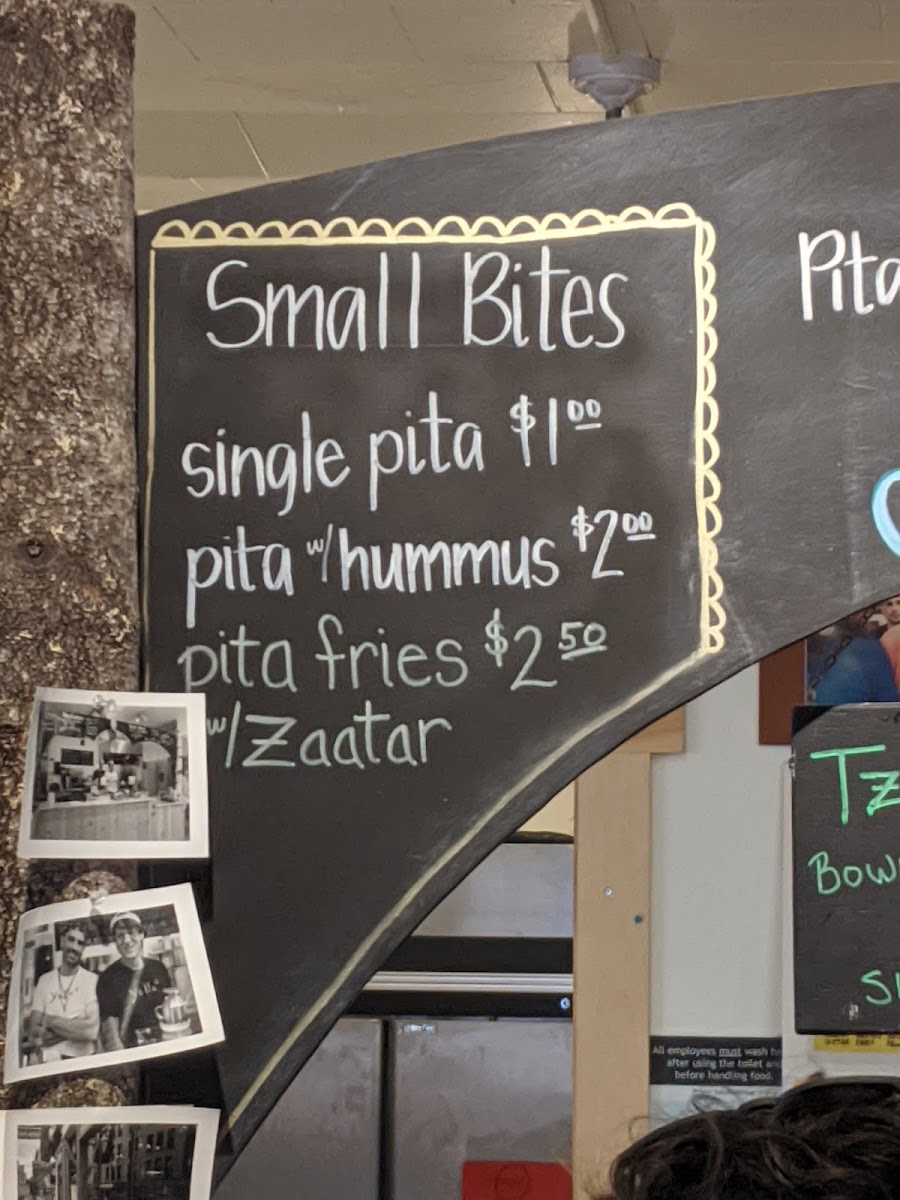 Small Bites
single pita $1.00
pita w/hummus $2.00
pita fries $2.50
w/Zaatar
Pita
Tz
Bow
All employees must wash
after using the toilet
before handling food.